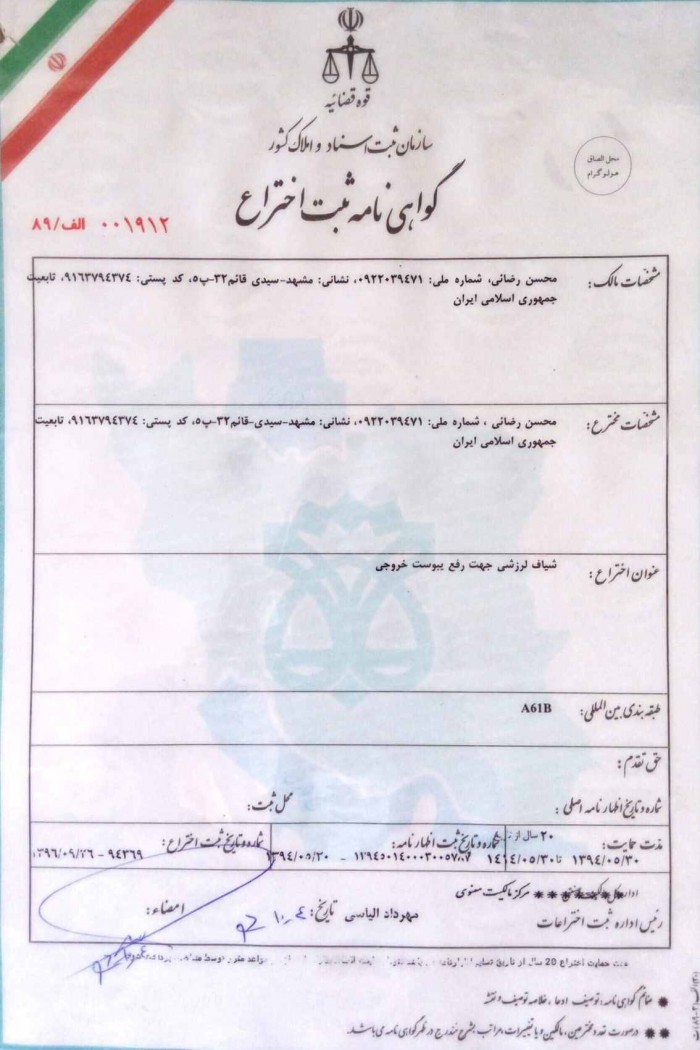 قوه قضائیه
سازمان ثبت اسناد و املاک کشور
محل الصاق
هولوگرام
گواهی نامه ثبت اختراع
۰۰۱۹۱۲ الف/۸۹
مشخصات مالک: محسن رضائی، شماره ملی: ۰۹۲۲۰۳۹٤۷۱، نشانی: مشهد-سیدی قائم۳۲-پ۵، کد پستی: ۹۱۶۳۷۹٤۳۷٤، تابعیت
جمهوری اسلامی ایران
مشخصات مخترع: محسن رضائی ، شماره ملی: ۰۹۲۲۰۳۹٤۷۱، نشانی: مشهد-سیدی-قائم۳۲-پ۵، کد پستی: ۹۱۶۳۷۹٤۳۷٤، تابعیت
جمهوری اسلامی ایران
عنوان اختراع: شیاف لرزشی جهت رفع یبوست خروجی
طبقه بندی بین المللی: A61B
حق تقدم:
شماره و تاریخ اظهارنامه اصلی: محل ثبت:
مدت حمایت: ۲۰ سال از تاریخ شماره و تاریخ ثبت اظهارنامه: شماره و تاریخ ثبت اختراع:
۱۳۹٤/۰۵/۳۰ تا ۱٤۱٤/۰۵/۳۰ ۱۳۹٤/۰۵/۳۰ - ۹٤۳۶۹
مرکز مالکیت معنوی
رئیس اداره ثبت اختراعات مهرداد الیاسی تاریخ: امضاء:
مدت حمایت اختراع 20 سال از تاریخ
ضمائم گواهی نامه: توصیف، ادعا، خلاصه توصیف و نقشه
درصورت تعدد مخترعین، مالکین و یا تغییرات، مراتب بشرح مندرج در ظهر گواهی نامه می باشد.